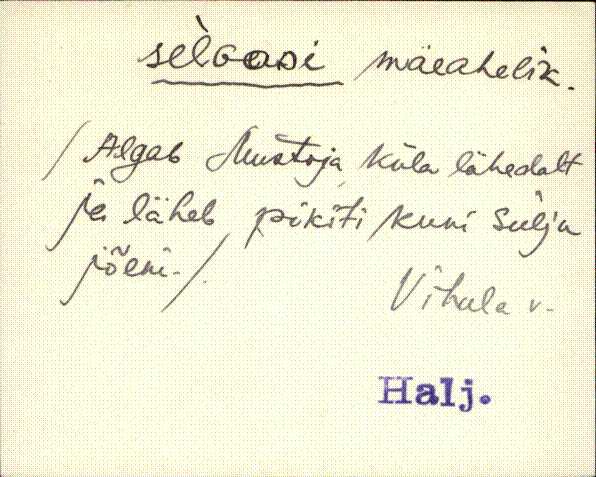 sèl̀oosi mäeahelik.
/ Algab Mustoja küla lähedalt
ja läheb pikiti kuni Sülju
jõeni. /
Vihula v.
Halj.